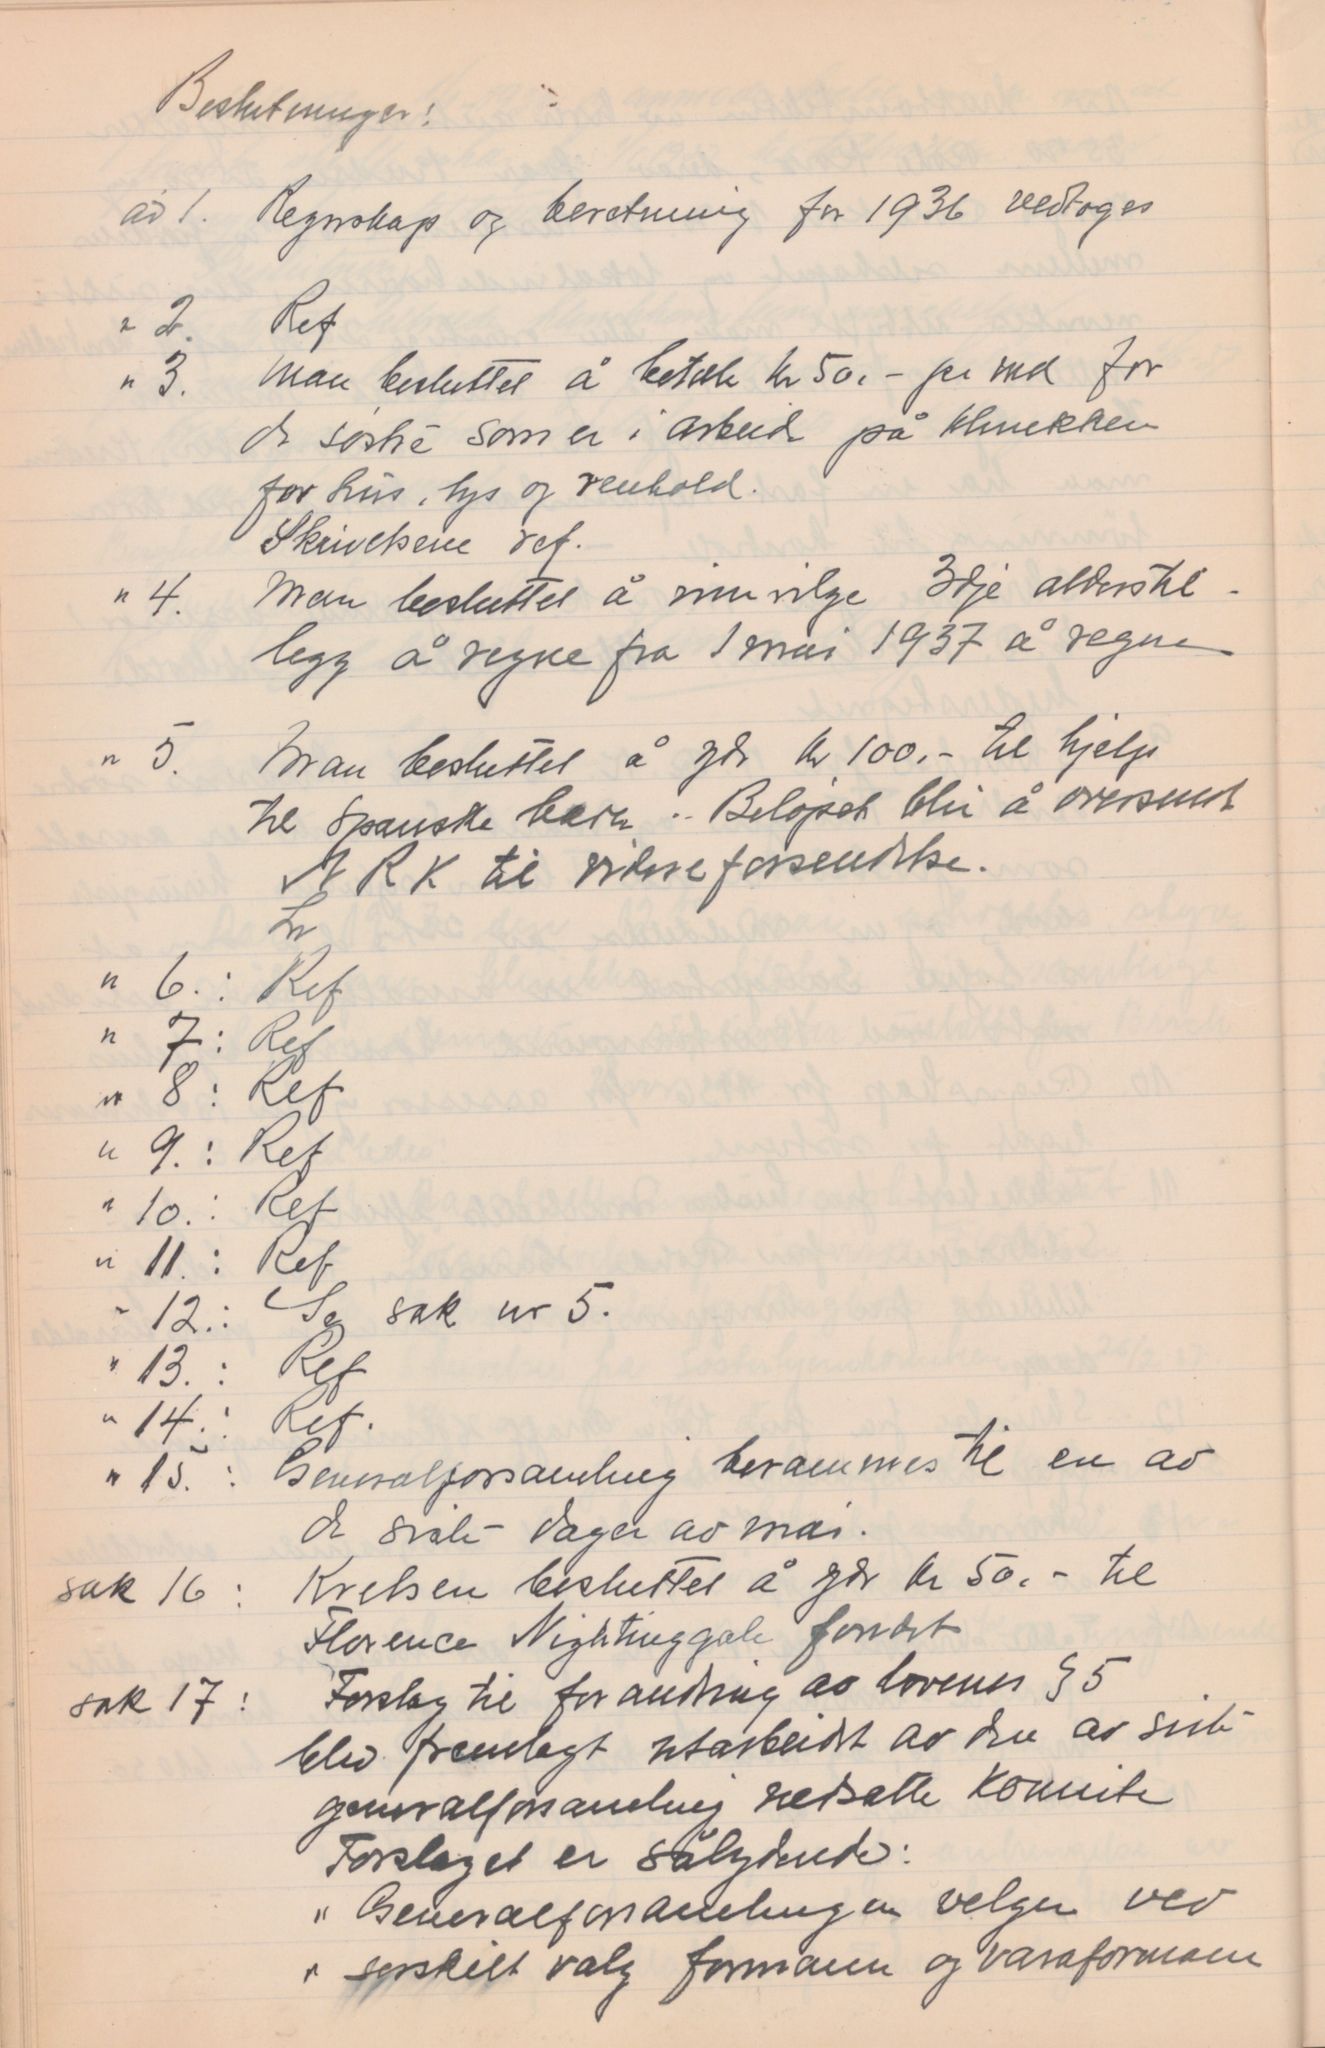 Beslutninger:
ad 1. Regnskap og beretning for 1936 vedtoges
" 2. Ref
" 3. Man besluttet å betale kr 50.- pr md for
de søstre som er i arbeid på klinikken
for hus, lys og renhold.
Skrivelsene ref.
" 4. Man besluttet å innvilge 3dje alderstil-
legg å regne fra 1 mai 1937 å regne
" 5. Man besluttet å yde kr 100.- til hjelp
til spanske barn .. Beløpet blir å oversende
N R K til videre forsendelse.
" 6.: Ref
" 7: Ref
" 8: Ref
" 9.: Ref
" 10.: Ref
" 11.: Ref
" 12.: Se sak nr 5.
" 13.: Ref
" 14.: Ref.
" 15.: Generalforsamling berammes til en av
de siste dager av mai.
sak 16: Kretsen besluttet å yde kr 50.- til
Florence Nightinggale fondet
sak 17: Forslag til forandring av lovenes § 5
blev fremlagt utarbeidet av den av siste
generalforsamling nedsatte komite
Forslaget er sålydende:
" Generalforsamlingen velger ved
" serskilt valg formann og varaformann